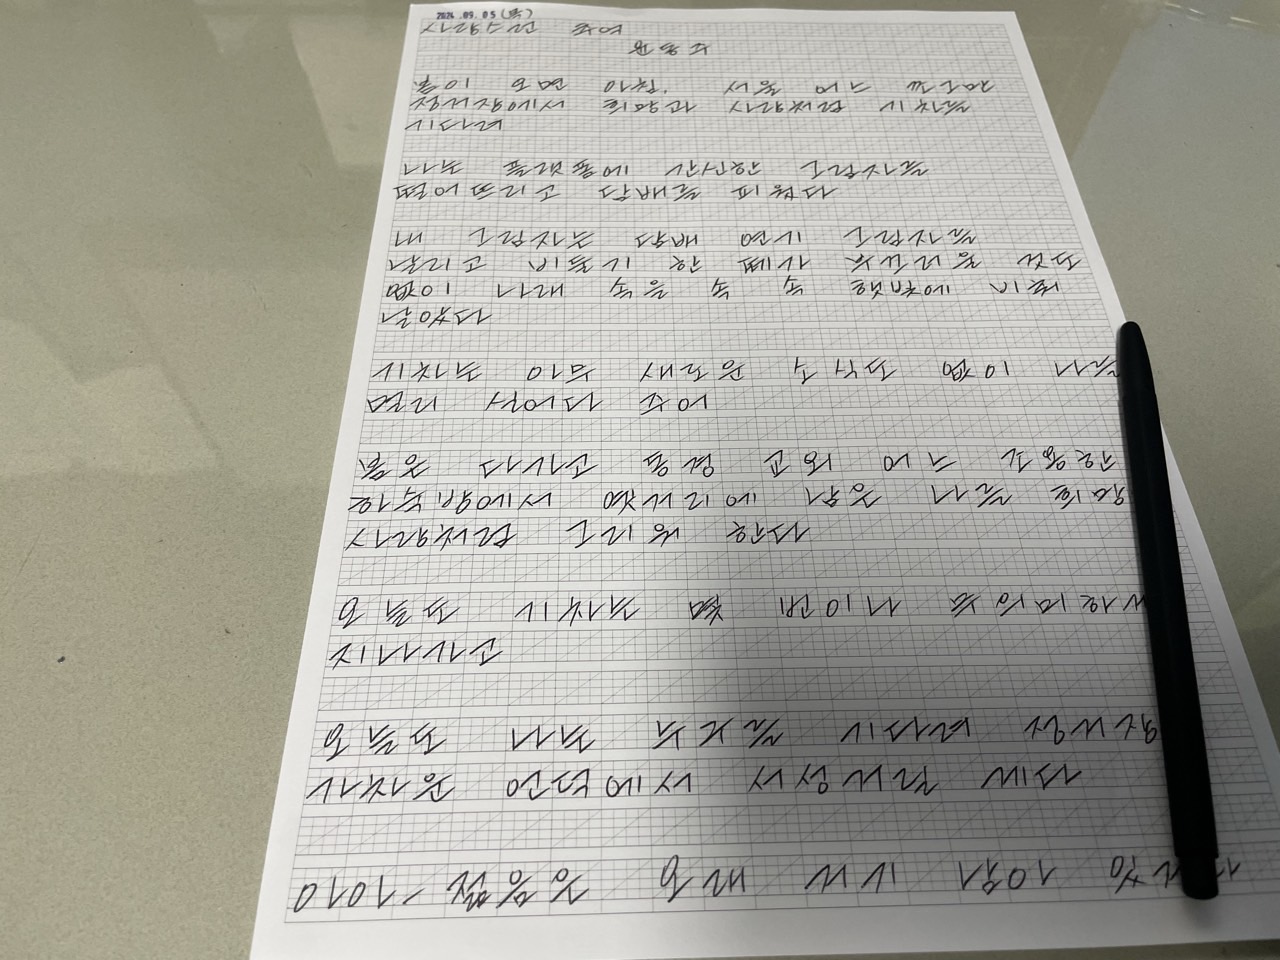 2024.09.05(목)
사랑스런 추억
윤동주
봄이 오던 아침, 서울 어느 쪼그만
정거장에서 희망과 사랑처럼 기차를
기다려
나는 플랫폼에 간신한 그림자를
떨어뜨리고 담배를 피웠다
내 그림자는 담배 연기 그림자를
날리고 비둘기 한 떼가 부끄러울 것도
없이 나래 속을 속 속 햇빛에 비춰
날았다
기차는 아무 새로운 소식도 없이 나를
멀리 실어다 주어
봄은 다가고 동경 교외 어느 조용한
하숙방에서 옛거리에 남은 나를 희망
사랑처럼 그리워 한다
오늘도 기차는 몇 번이나 무의미하게
지나가고
오늘도 나는 누구를 기다려 정거장
가차운 언덕에서 서성거릴 게다
아아- 젊음은 오래 거기 남아